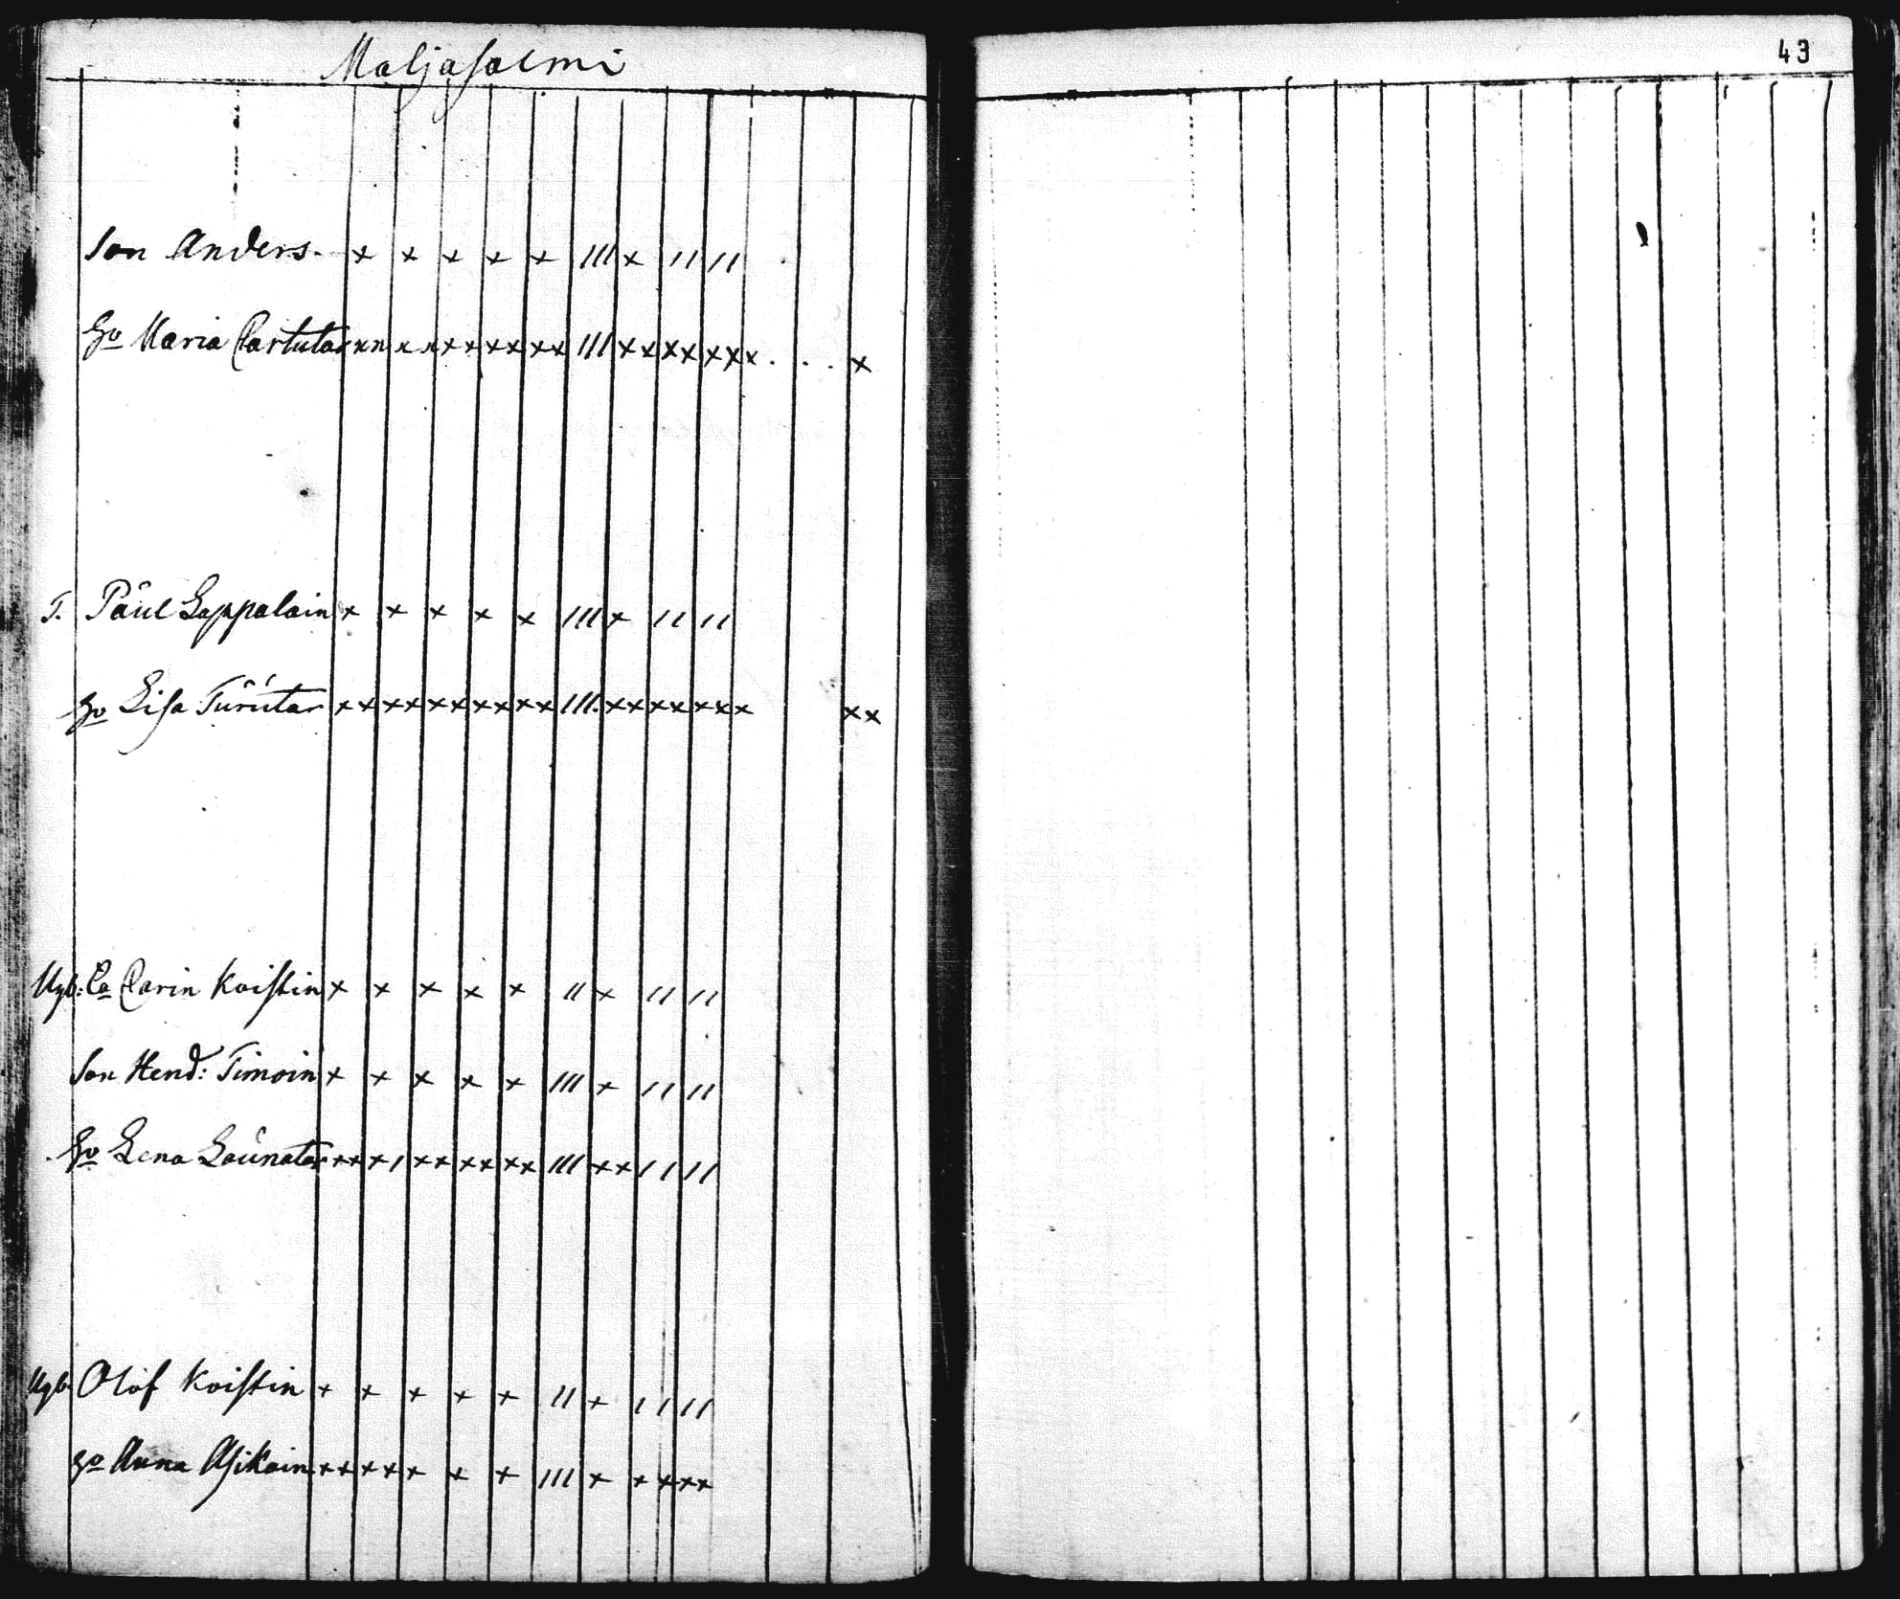 Maljasalmi
43
Son Anders. x x x x x /// x // //
Ho Maria Partutar xx xx xx xx xx /// xx xx xxx . . . x
T. Påul Lappalain x x x x x /// x // //
Ho Lisa Turutar xx xx xx xx xx /// xx xx xxx xx
Ugb: Ea Carin Koistin x x x x x // x // //
Son Hend: Timoin x x x x x /// x // //
Ho Lena Launatar xx x/ xx xx xx /// xx // //
Ugb Olof Koistin x x x x x // x // //
Ho Anna Asikain xx xx x x x /// x xx xx